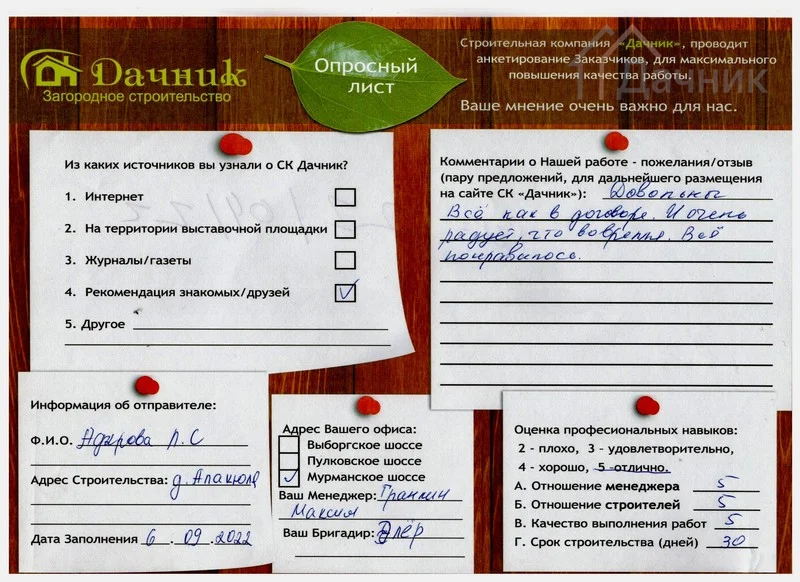 Дачник
Загородное строительство
Опросный
лист
Строительная компания «Дачник», проводит
анкетирование Заказчиков, для максимального
повышения качества работы.
Ваше мнение очень важно для нас.
Дачник
Из каких источников вы узнали о СК Дачник?
1. Интернет
2. На территории выставочной площадки
3. Журналы/газеты
4. Рекомендация знакомых/друзей
5. Другое
Комментарии о Нашей работе - пожелания/отзыв
(пару предложений, для дальнейшего размещения
на сайте СК «Дачник»): Довольны
Всё как в договоре. И очень
радует, что вовремя. Всё
понравилось.
Информация об отправителе:
Ф.И.О. Л.С
Адрес Строительства: д.
Дата Заполнения 6.09.2022
Адрес Вашего офиса:
Выборгское шоссе
Пулковское шоссе
Мурманское шоссе
Ваш Менеджер:
Максим
Ваш Бригадир:
Оценка професиональных навыков:
2 - плохо, 3 - удовлетворительно,
4 - хорошо, 5 -отлично.
А. Отношение менеджера 5
Б. Отношение строителей 5
В. Качество выполнения работ 5
Г. Срок строительства (дней) 30